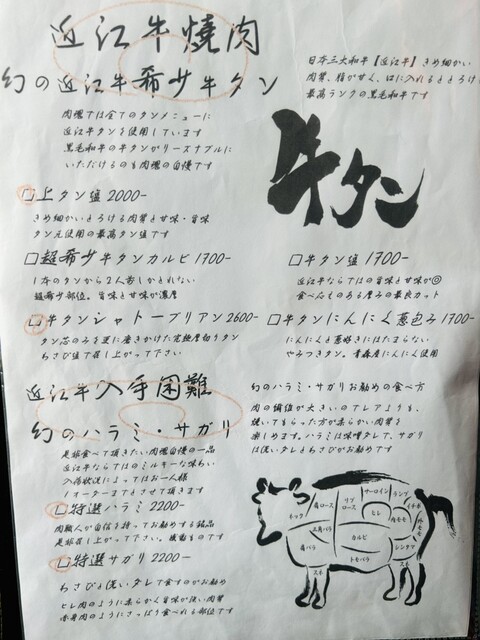 近江牛焼肉
幻の近江牛希少牛タン
日本三大和牛【近江牛】きめ細かい
肉質、脂が甘く、口に入れるととろけ
最高ランクの黒毛和牛です
肉魂では全てのタンメニューに
近江牛タンを使用しています
黒毛和牛の牛タンがリーズナブルに
いただけるのも肉魂の自慢です
牛タン
□上タン塩 2000-
きめ細かいとろける肉質と甘味・旨味
タン元使用の最高タン塩です
□超希少牛タンカルビ 1700-
1本のタンから2人前しかとれない
超希少部位。旨味と甘味が濃厚
□牛タン塩 1700-
近江牛ならではの旨味と甘味が◎
食べ応えのある厚みの最良カット
□牛タンシャトーブリアン 2600-
タン芯のみを更に磨きかけた究極厚切りタン
わさび塩で召し上がって下さい
□牛タンにんにく葱包み 1700-
にんにくと葱好きにはたまらない
やみつきタン。青森産にんにく使用
近江牛入手困難
幻のハラミ・サガリ
是非食べて頂きたい肉魂自慢の一品
近江牛ならではのミルキーな味わい
入荷状況によってはお一人様
1オーダーまでとさせて頂きます
□特選ハラミ 2200-
肉職人が自信を持ってお勧めする銘品
是非召し上がって下さい。
□特選サガリ 2200-
わさびと洗いダレで食すのがお勧め
ヒレ肉のように柔らかく旨味が強い肉質
赤身肉のようにさっぱり食べれる部位です
幻のハラミ・サガリお勧めの食べ方
肉の繊維が大きいのでレアよりも、
焼いてもらった方が柔らかい肉質を
楽しめます。ハラミは味噌ダレで、サガリ
は洗いダレとわさびがお勧めです
ネック
肩ロース
リブロース
サーロイン
ランプ
イチボ
ヒレ
内モモ
外モモ
三角バラ
肩バラ
カルビ
トモバラ
シンタマ
スネ
スネ